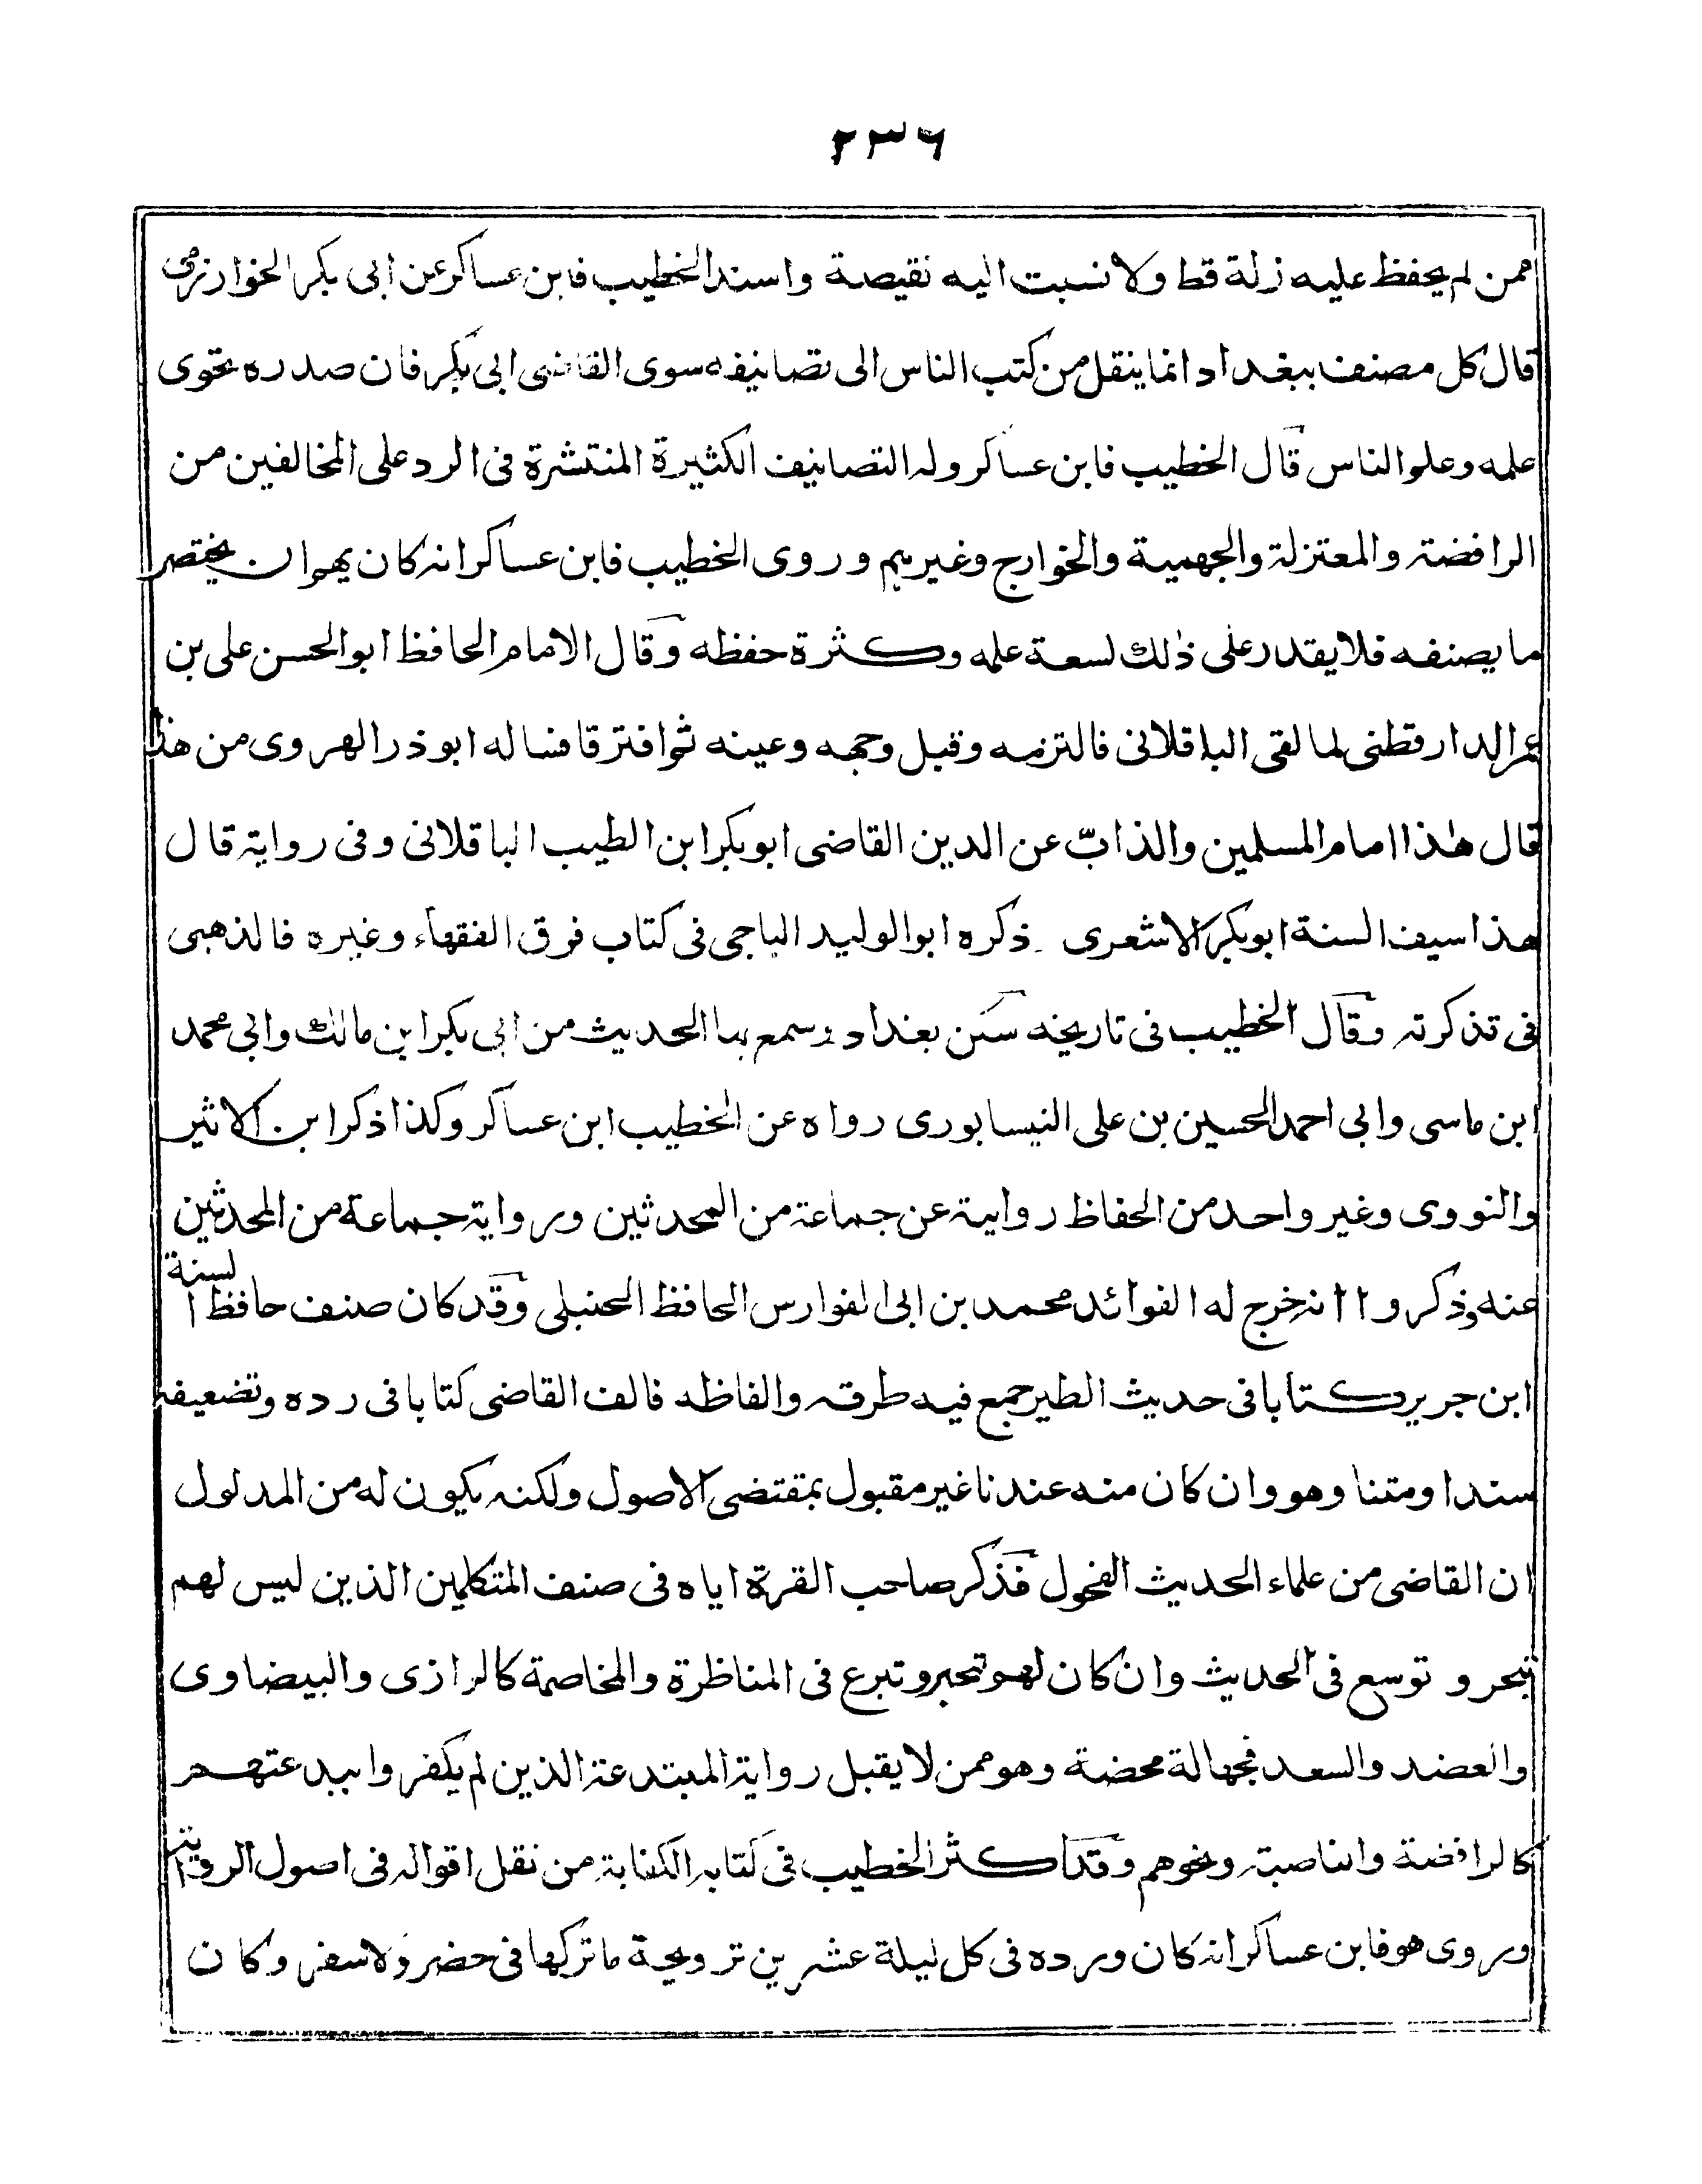 ٢٣٦
ممن لم يحفظ عليه زلة قط ولا نسبت اليه نقيصة واسند الخطيب فابن عساكر عن ابى بكر الخوارزمى
قال كل مصنف ببغداد انما ينقل من كتب الناس الى تصانيفه سوى القاضى ابى بكر فان صدره يحوى
علمه وعلم الناس قال الخطيب فابن عساكر وله التصانيف الكثيرة المنتشرة فى الرد على المخالفين من
الرافضة والمعتزلة والجهمية والخوارج وغيرهم وروى الخطيب فابن عساكر انه كان يهم ان يختصر
ما يصنفه فلا يقدر على ذلك لسعة علمه وكثرة حفظه وقال الامام الحافظ ابو الحسن على بن
عمر الدارقطنى لما لقى الباقلانى فالتزمه وقبل وجهه وعينه ثم افترقا فساله ابو ذر الهروى من هذا
قال هذا امام المسلمين والذابّ عن الدين القاضى ابو بكر ابن الطيب الباقلانى وفى رواية قال
هذا سيف السنة ابو بكر الاشعرى ذكره ابو الوليد الباجى فى كتاب فرق الفقهاء وغيره فالذهبى
فى تذكرته وقال الخطيب فى تاريخه سكن بغداد وسمع بها الحديث من ابى بكر ابن مالك وابى محمد
ابن ماسى وابى احمد الحسين بن على النيسابورى رواه عن الخطيب ابن عساكر وكذا ذكر ابن الاثير
والنووى وغير واحد من الحفاظ رواية عن جماعة من المحدثين ورواية جماعة من المحدثين
عنه وذكروا انه خرج له الفوائد محمد بن ابى الفوارس الحافظ الحنبلى وقد كان صنف حافظ السنة
ابن جرير كتابا فى حديث الطير جمع فيه طرقه والفاظه فالف القاضى كتابا فى رده وتضعيفه
سندا ومتنا وهو وان كان منه عندنا غير مقبول بمقتضى الاصول ولكنه يكون له من المدلول
ان القاضى من علماء الحديث الفحول فذكر صاحب القرة اياه فى صنف المتكلمين الذين ليس لهم
تبحر و توسع فى الحديث وان كان لهم تحبر وتبرع فى المناظرة والمخاصمة كالرازى والبيضاوى
والعضد والسعد فجهالة محضة وهو ممن لا يقبل رواية المبتدعة الذين لم يكفروا ببدعتهم
كالرافضة والناصبة ونحوهم وقد اكثر الخطيب فى كتابه الكفاية من نقل اقواله فى اصول الرواية
وروى هو فابن عساكر انه كان ورده فى كل ليلة عشرين ترويحة ما تركها فى حضر ولا سفر وكان